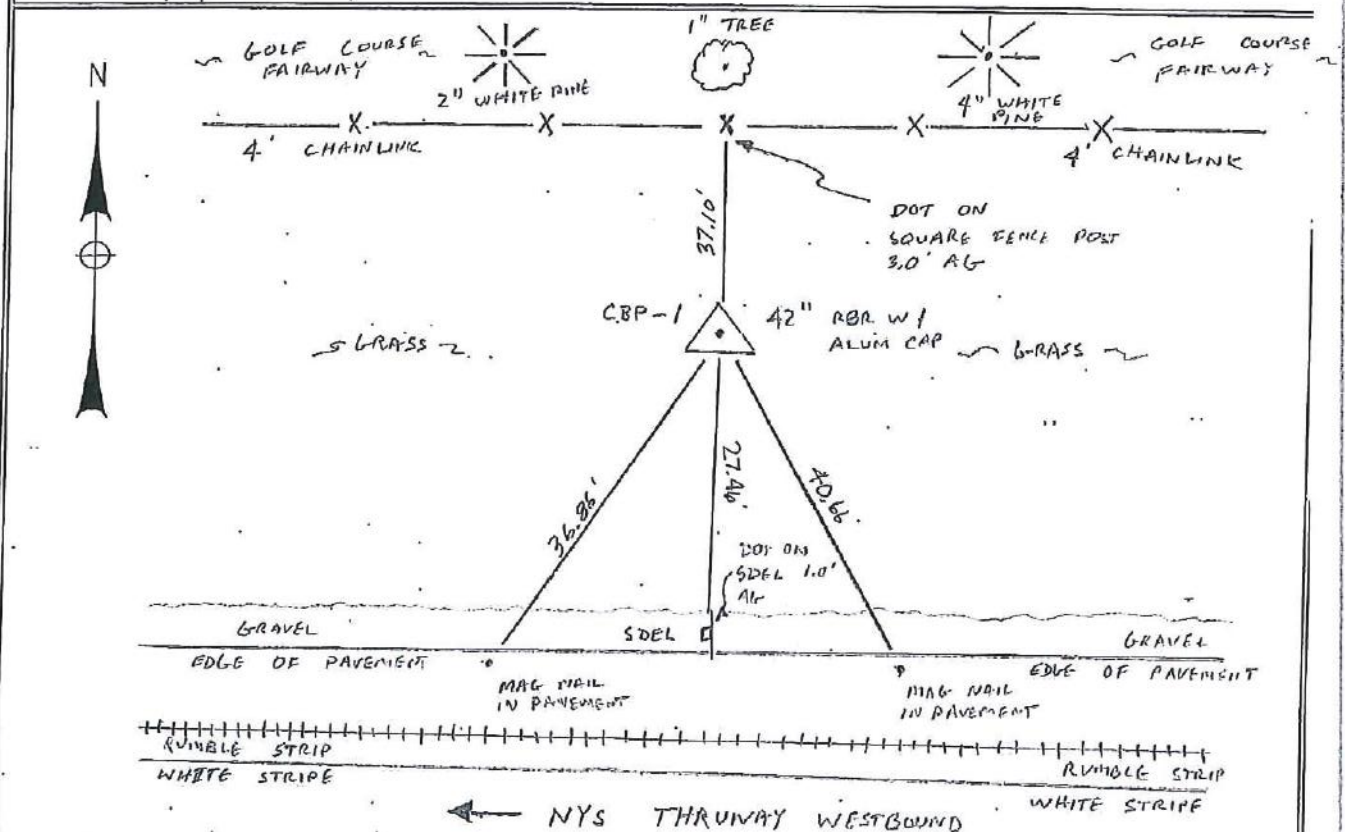 1" TREE
GOLF COURSE
FAIRWAY
GOLF COURSE
FAIRWAY
N
2" WHITE PINE
4" WHITE
PINE
4' CHAINLINK
4' CHAINLINK
37.10'
DOT ON
SQUARE FENCE POST
3.0' AG
CBP-1
42" RBR W/
ALUM CAP
GRASS
GRASS
36.86'
27.46'
40.66'
DOT ON
SDEL 1.0'
AG
GRAVEL
SDEL
GRAVEL
EDGE OF PAVEMENT
EDGE OF PAVEMENT
MAG NAIL
IN PAVEMENT
MAG NAIL
IN PAVEMENT
RUMBLE STRIP
RUMBLE STRIP
WHITE STRIPE
WHITE STRIPE
NYS THRUWAY WESTBOUND